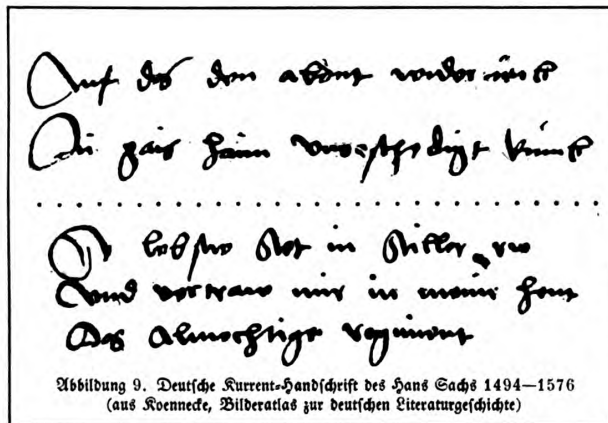 Auf das den abent wider
Di gais haim vnbeschedigt
lebstw stet in stiller rw
Vnd vertraw mir in mein hent
Das Almechtige regiment
Abbildung 9. Deutsche Kurrent-Handschrift des Hans Sachs 1494—1576
(aus Koennecke, Bilderatlas zur deutschen Literaturgeschichte)